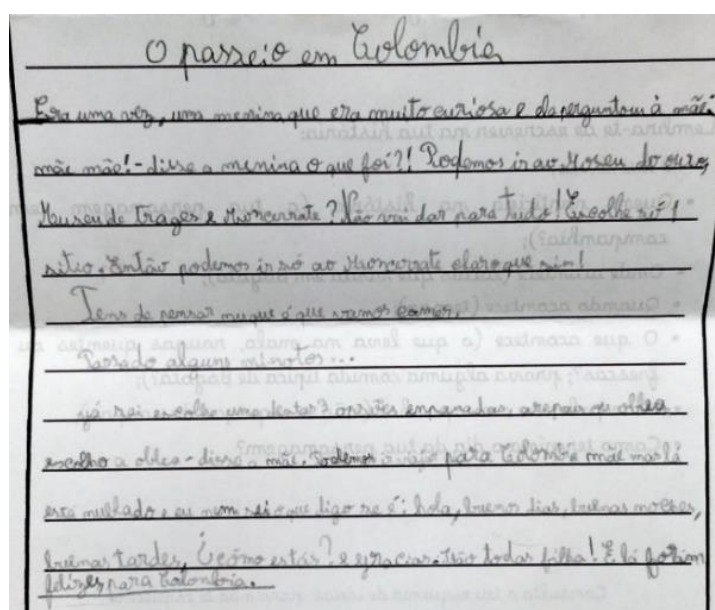 O passeio em Colombia
Era uma vez, uma menina que era muito curiosa e ela perguntou à mãe:
mãe mãe! - disse a menina o que foi?! Podemos ir ao Moseu do ouro,
Museu de Trages e Moncerrate? Não vai dar para tudo! Escolhe só 1
sitio. Então podemos ir só ao Moncerrate claro que sim!
Tens de pensar no que é que vamos comer.
Passado alguns minotos...
já sei escolhe uma destas 3 opsões empanadas, arepas ou oblea
escolho a oblea - disse a mãe. Podemos ir já para Colombia mãe mas lá
esta nublado e eu nem sei o que digo se é: hola, buenos dias, buenas noches,
buenas tardes, ¿cómo estás? e gracias. São todas filha! E lá foram
felizes para Colombia.